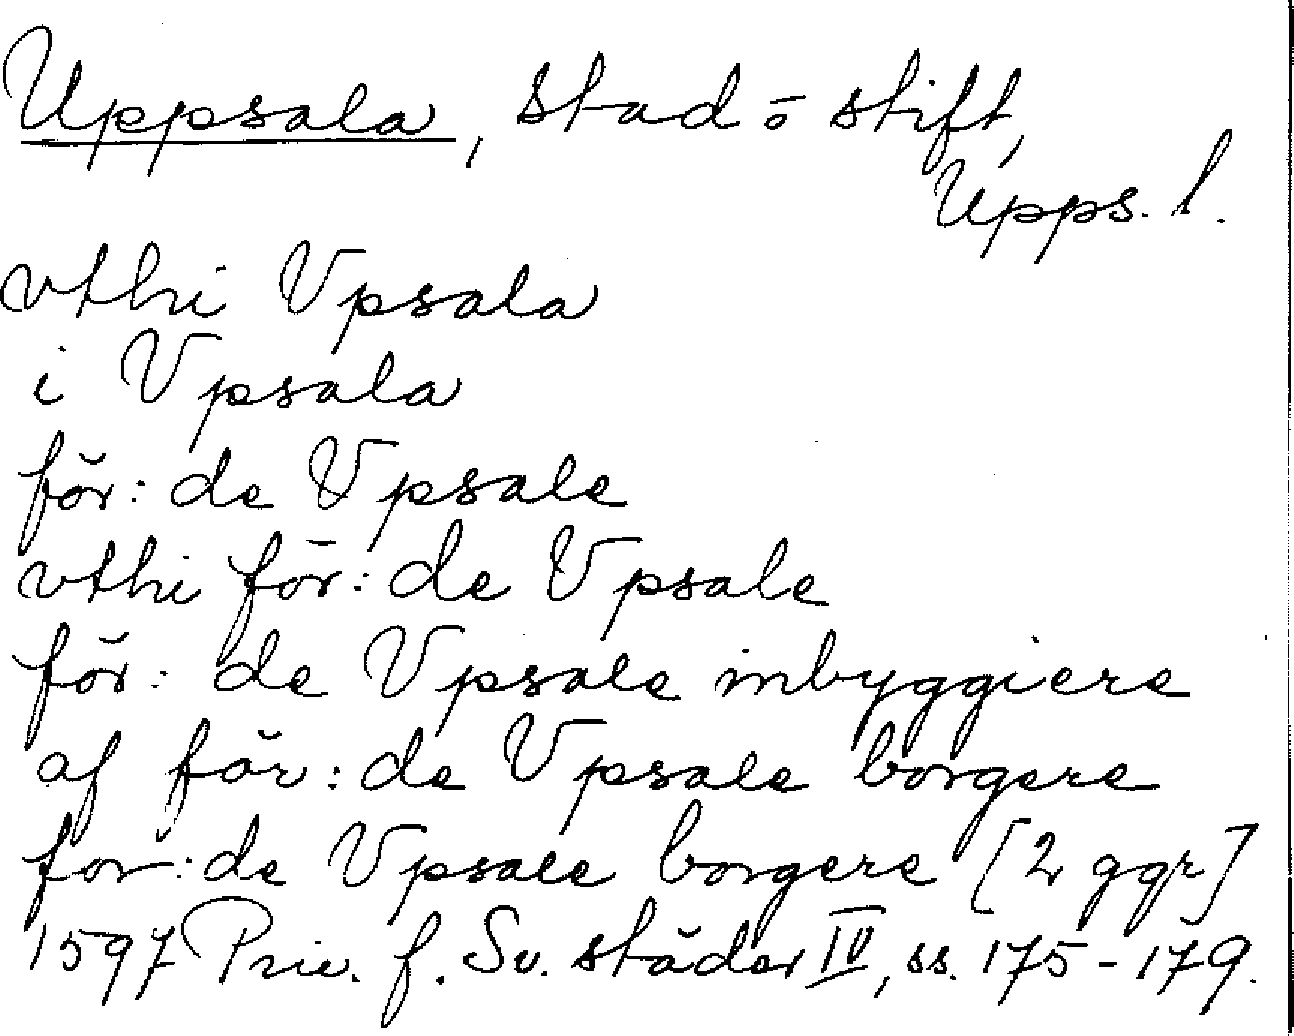 Uppsala, stad o stift,
Upps. l.
vthi Vpsala
i Vpsala
för: de Vpsale
vthi för: de Vpsale
för: de Vpsale inbyggiere
af för: de Vpsale borgere
för: de Vpsale borgere [2 ggr]
1597 Priv. f. Sv. städer IV, ss. 175-179.